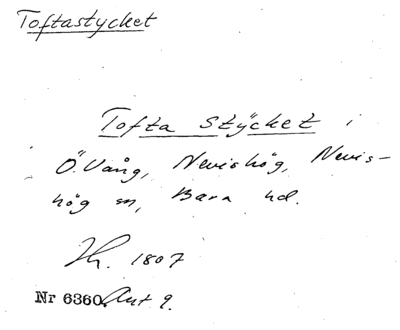 Toftastycket
Tofta Stÿcket i
Ö. Vång, Nevishög, Nevis-
hög sn, Bara hd.
1807
Nr 6360. Akt 9.